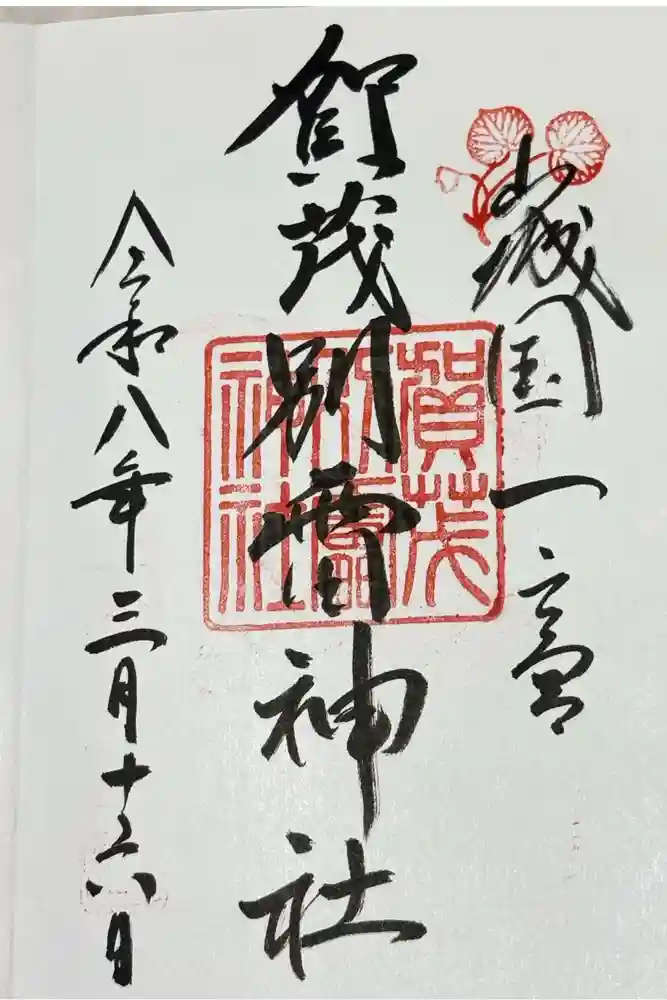 山城国一之宮
賀茂別雷神社
令和八年三月十六日
賀茂
別雷
神社